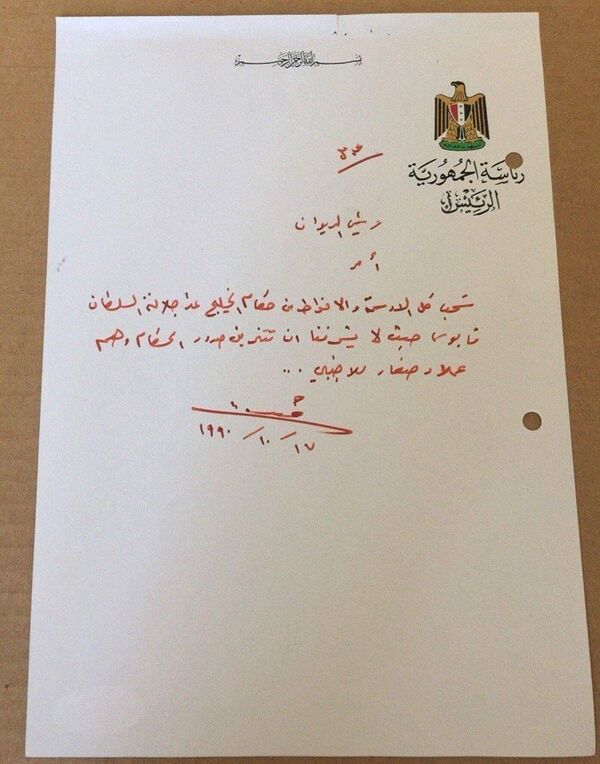 بسم الله الرحمن الرحيم
رئاسة الجمهورية
الرئيس
رئيس الديوان
أمر
سحب كل الاوسمة والانواط من حكام الخليج عدا جلالة السلطان
قابوس حيث لا يشرفنا ان تتزين صدور الحكام وهم
عملاء صغار للاجنبي ...
١٧ / ١٠ / ١٩٩٠